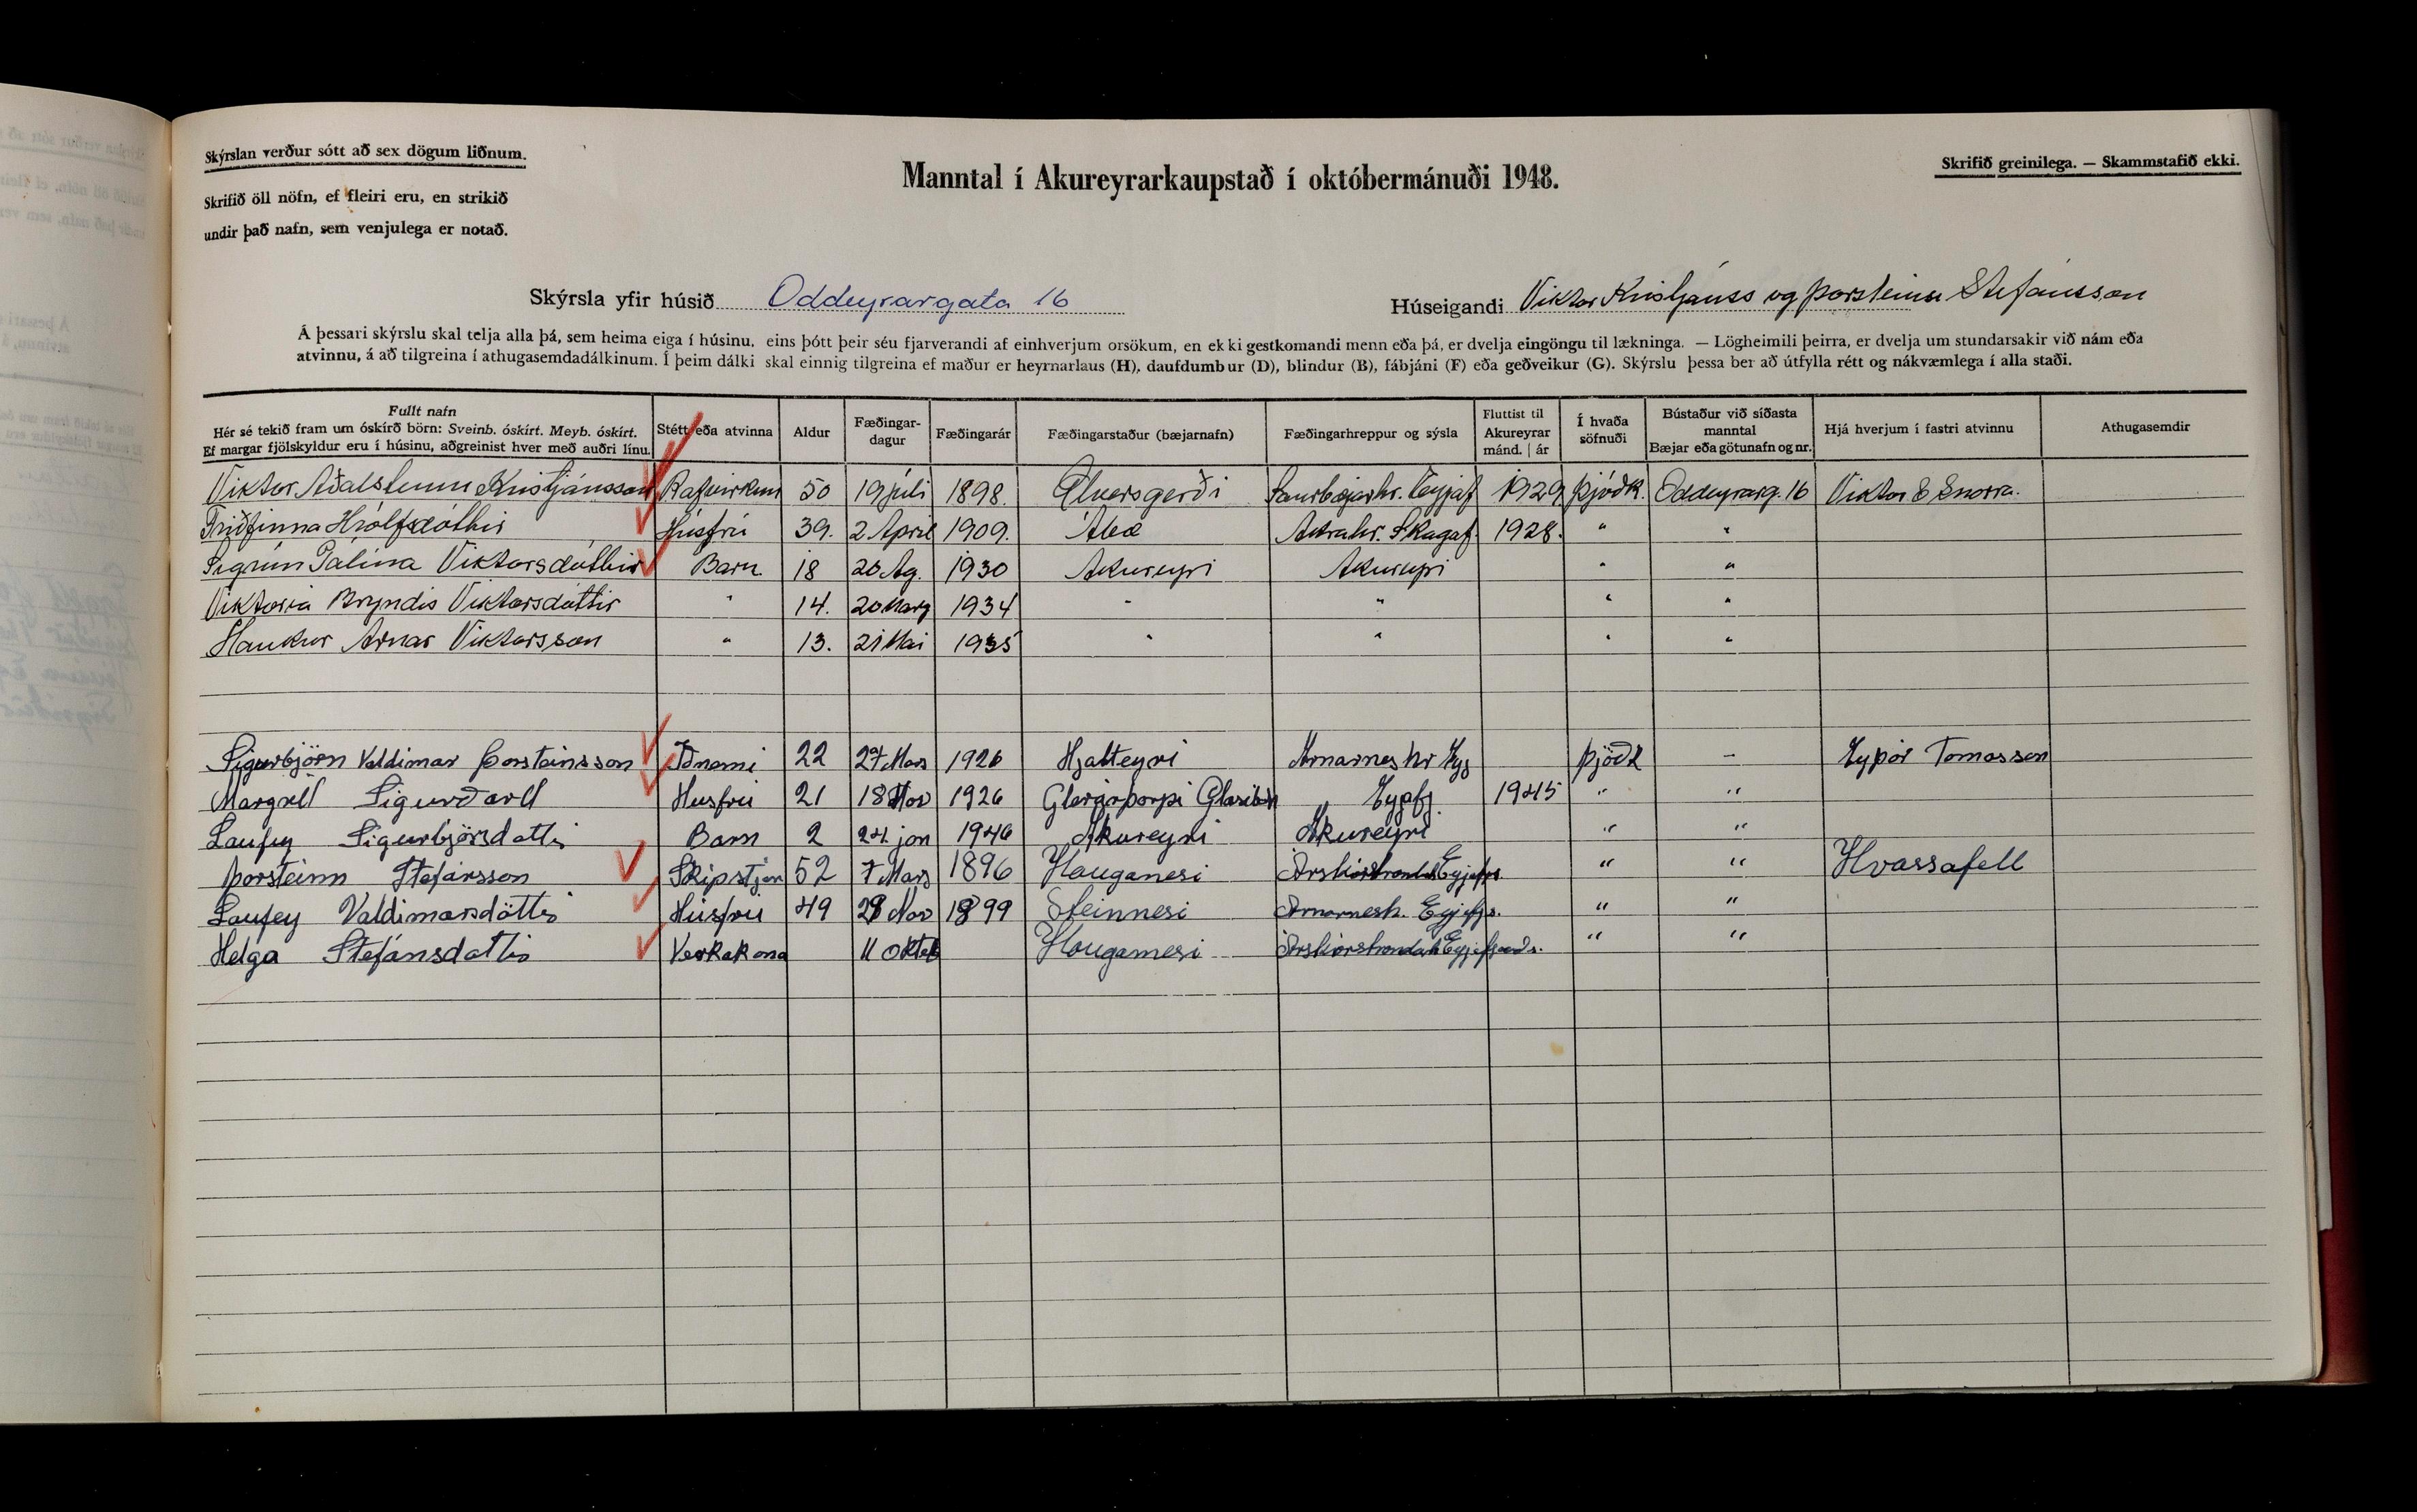 Skýrslan verður sótt að sex dögum liðnum.
Skrifið öll nöfn, ef fleiri eru, en strikið
undir það nafn, sem venjulega er notað.
Manntal í Akureyrarkaupstað í októbermánuði 1948.
Skrifið greinilega. — Skammstafið ekki.
Skýrsla yfir húsið Oddeyrargata 16
Húseigandi Viktor Kristjánss og Þorsteinn Stefánsson
Á þessari skýrslu skal telja alla þá, sem heima eiga í húsinu, eins þótt þeir séu fjarverandi af einhverjum orsökum, en ekki gestkomandi menn eða þá, er dvelja eingöngu til lækninga. — Lögheimili þeirra, er dvelja um stundarsakir við nám eða
atvinnu, á að tilgreina í athugasemdadálkinum. Í þeim dálki skal einnig tilgreina ef maður er heyrnarlaus (H), daufdumbur (D), blindur (B), fábjáni (F) eða geðveikur (G). Skýrslu þessa ber að útfylla rétt og nákvæmlega í alla staði.
Fullt nafn
Hér sé tekið fram um óskírð börn: Sveinb. óskírt. Meyb. óskírt.
Ef margar fjölskyldur eru í húsinu, aðgreinist hver með auðri línu.
Stétt eða atvinna
Aldur
Fæðingar-
dagur
Fæðingarár
Fæðingarstaður (bæjarnafn)
Fæðingarhreppur og sýsla
Fluttist til
Akureyrar
mánd. | ár
Í hvaða
söfnuði
Bústaður við síðasta
manntal
Bæjar eða götunafn og nr.
Hjá hverjum í fastri atvinnu
Athugasemdir
Viktor Aðalsteinn Kristjánsson Rafvirkun 50 19 júli 1898. Saurbæjarhr. Eyjaf 1929 Þjóðk. Oddeyrarg. 16 Viktor & Snorra.
Friðfinna Hrólfsdóttir Húsfrú 39. 2 April 1909. Ábæ Akrahr. Skagaf. 1928. " "
Sigrún Pálína Viktorsdóttir Barn 18 20 Ag. 1930 Akureyri Akureyri " "
Viktoria Bryndis Viktorsdóttir " 14. 20 Marz 1934 " " " "
Haukur Arnar Viktorsson " 13. 21 Mai 1935 " " " "
Sigurbjörn Valdimar Þorsteinsson Iðnemi 22 27 Mars 1926 Hjalteyri Arnarnes hr Þjóðk — Eyþór Tomasson
Margrét Sigurðard Husfrú 21 18 Nov 1926 Glerárþorpi Eyafj. 1945 " "
Laufey Sigurbjörsdottir Barn 2 24 jan 1946 Akureyri Akureyri " "
Þorsteinn Stefánsson Skipstjóri 52 7 Mars 1896 Hauganesi Eyjafjs. " " Hvassafell
Laufey Valdimarsdóttir Húsfrú 49 28 Nov 1899 Steinnesi Arnarnesh. Eyjafjs. " "
Helga Stefánsdottir Verkakona 11 Oktob Hauganesi Árskórstrandah Eyjafjarðs. " "